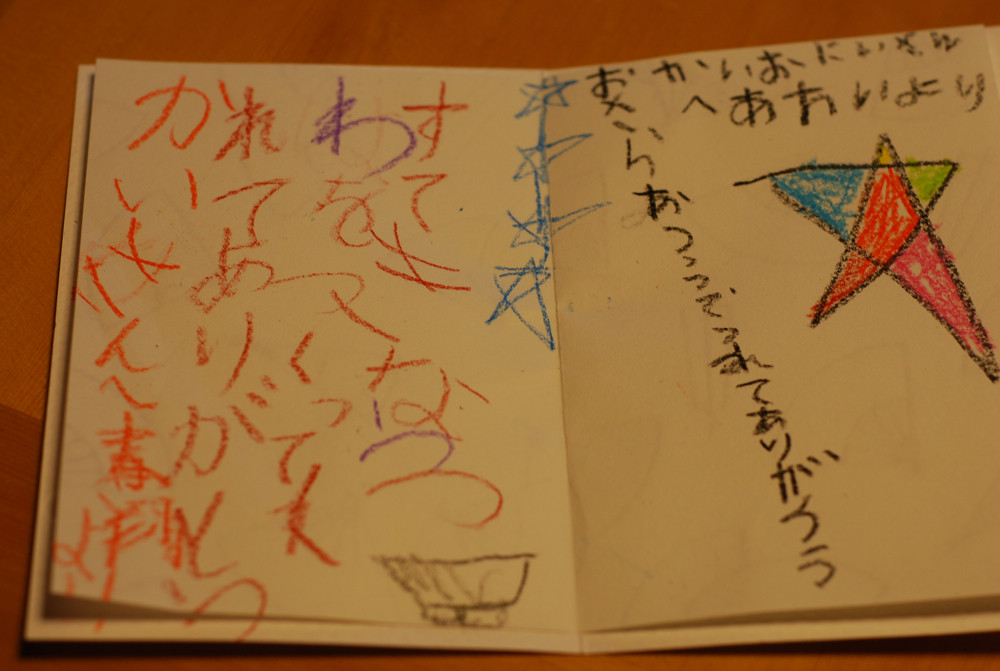 かいおにいさん
へあおいより
おさらおつくってくれてありがとう
すてきなうつ
わをつくってく
れてありがとう
かいさんへ春翔より